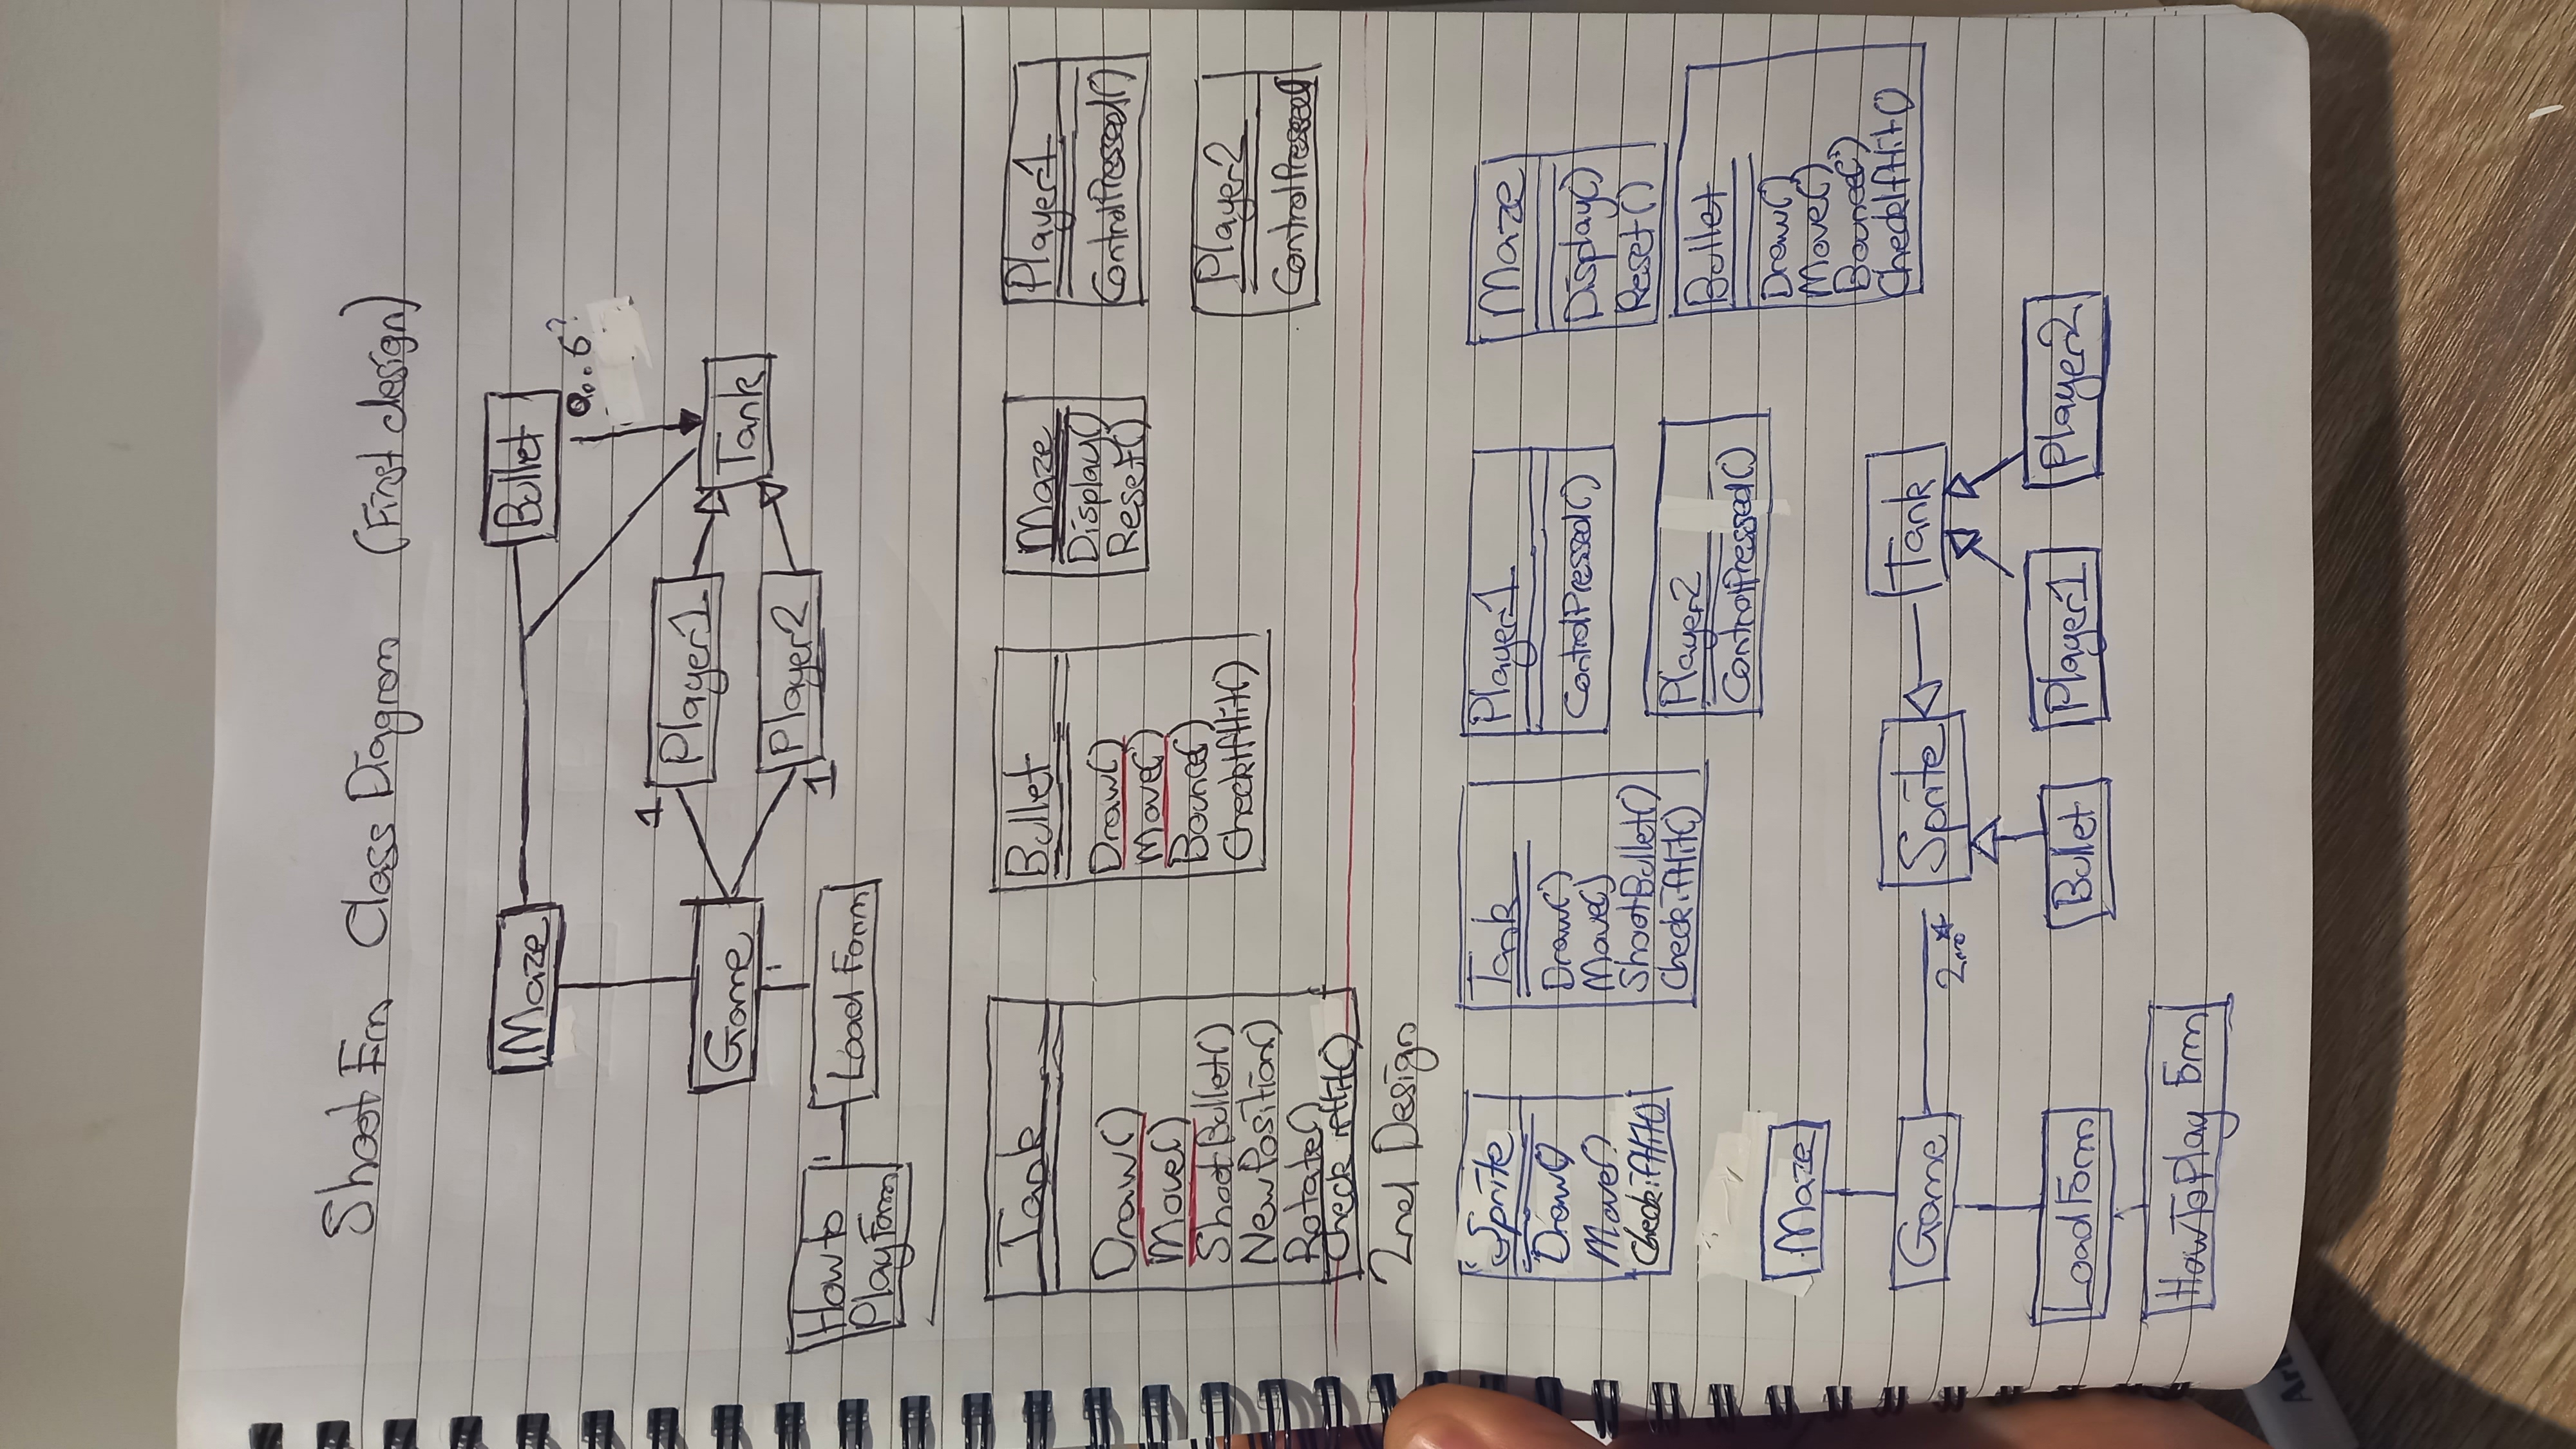 Shoot Em Class Diagram (First design)
Maze
Bullet
0..6?
1
Player1
Game
Tank
1
Player2
1
How to
Play Form
1
Load Form
Tank
Draw()
Move()
ShootBullet()
NewPosition()
Rotate()
Check ifHit()
Bullet
Draw()
Move()
Bounce()
CheckIfHit()
Maze
Display()
Reset()
Player1
ControlPressed()
Player2
ControlPressed()
2nd Design
Sprite
Draw()
Move()
CheckifHit()
Tank
Draw()
Move()
ShootBullet()
CheckifHit()
Player1
ControlPressed()
Player2
ControlPressed()
Maze
Display()
Reset()
Bullet
Draw()
Move()
Bounce()
CheckIfHit()
Maze
Game
2..*
Sprite
Tank
LoadForm
Bullet
Player1
Player2
HowToPlay Form